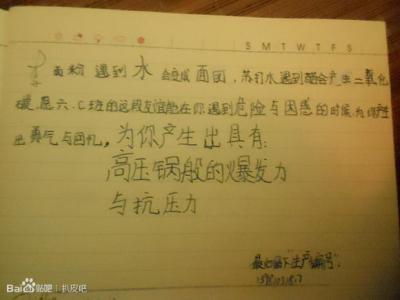 S M T W T F S
面粉 遇到 水 会变成 面团，苏打水遇到醋会产生二氧化
碳，愿六.C班的这段友谊能在你遇到危险与困惑的时候，为你产生
出勇气与
为你产生出具有：
高压锅般的爆发力
与抗压力
最后留下"生产编号"：
Bai贴吧 | 扒皮吧